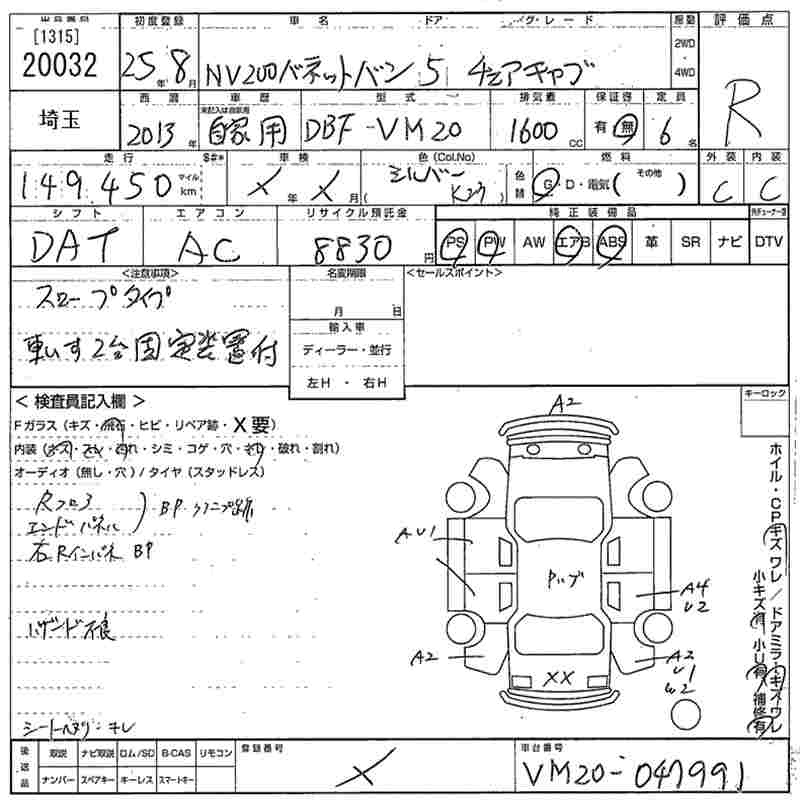 [1315]
20032
初度登録
車名
ドア
グレード
原動
評価点
25年8月
NV200バネットバン 5 チェアキャブ
2WD
4WD
R
埼玉
西暦
車歴
型式
排気量
保証書
定員
2013年
自家用
DBF-VM20
1600cc
有・無
6名
走行
車検
色(Col.No)
燃料
外装
内装
149,450
マイル
km
×年×月
シルバー
K23
色替
G・D・電気(その他)
C
C
シフト
エアコン
リサイクル預託金
純正装備品
DAT
AC
8830円
PS
PW
AW
エアB
ABS
革
SR
ナビ
DTV
<注意事項>
名変期限
<セールスポイント>
スロープタイプ
月 日
車いす2台固定装置付
輸入車
ディーラー・並行
左H・右H
<検査員記入欄>
キーロック
Fガラス(キズ・飛石・ヒビ・リペア跡・X要)
内装(キズ・スレ・汚れ・シミ・コゲ・穴・キレ・破れ・割れ)
オーディオ(無し・穴)/タイヤ(スタッドレス)
Rフロア
エンドパネル
BP クランプ跡
右Rインパネ BP
ハザード不良
シートヘタリ・キレ
A2
AU1
Pップ
A4
U2
A2
XX
A2
U1
U2
ホイル・CPキズワレ/ドアミラーキズワレ
小キズ有 小U有 補修有
後送品
取説
ナビ取説
ロム/SD
B-CAS
リモコン
ナンバー
スペアキー
キーレス
スマートキー
登録番号
×
車台番号
VM20-047991